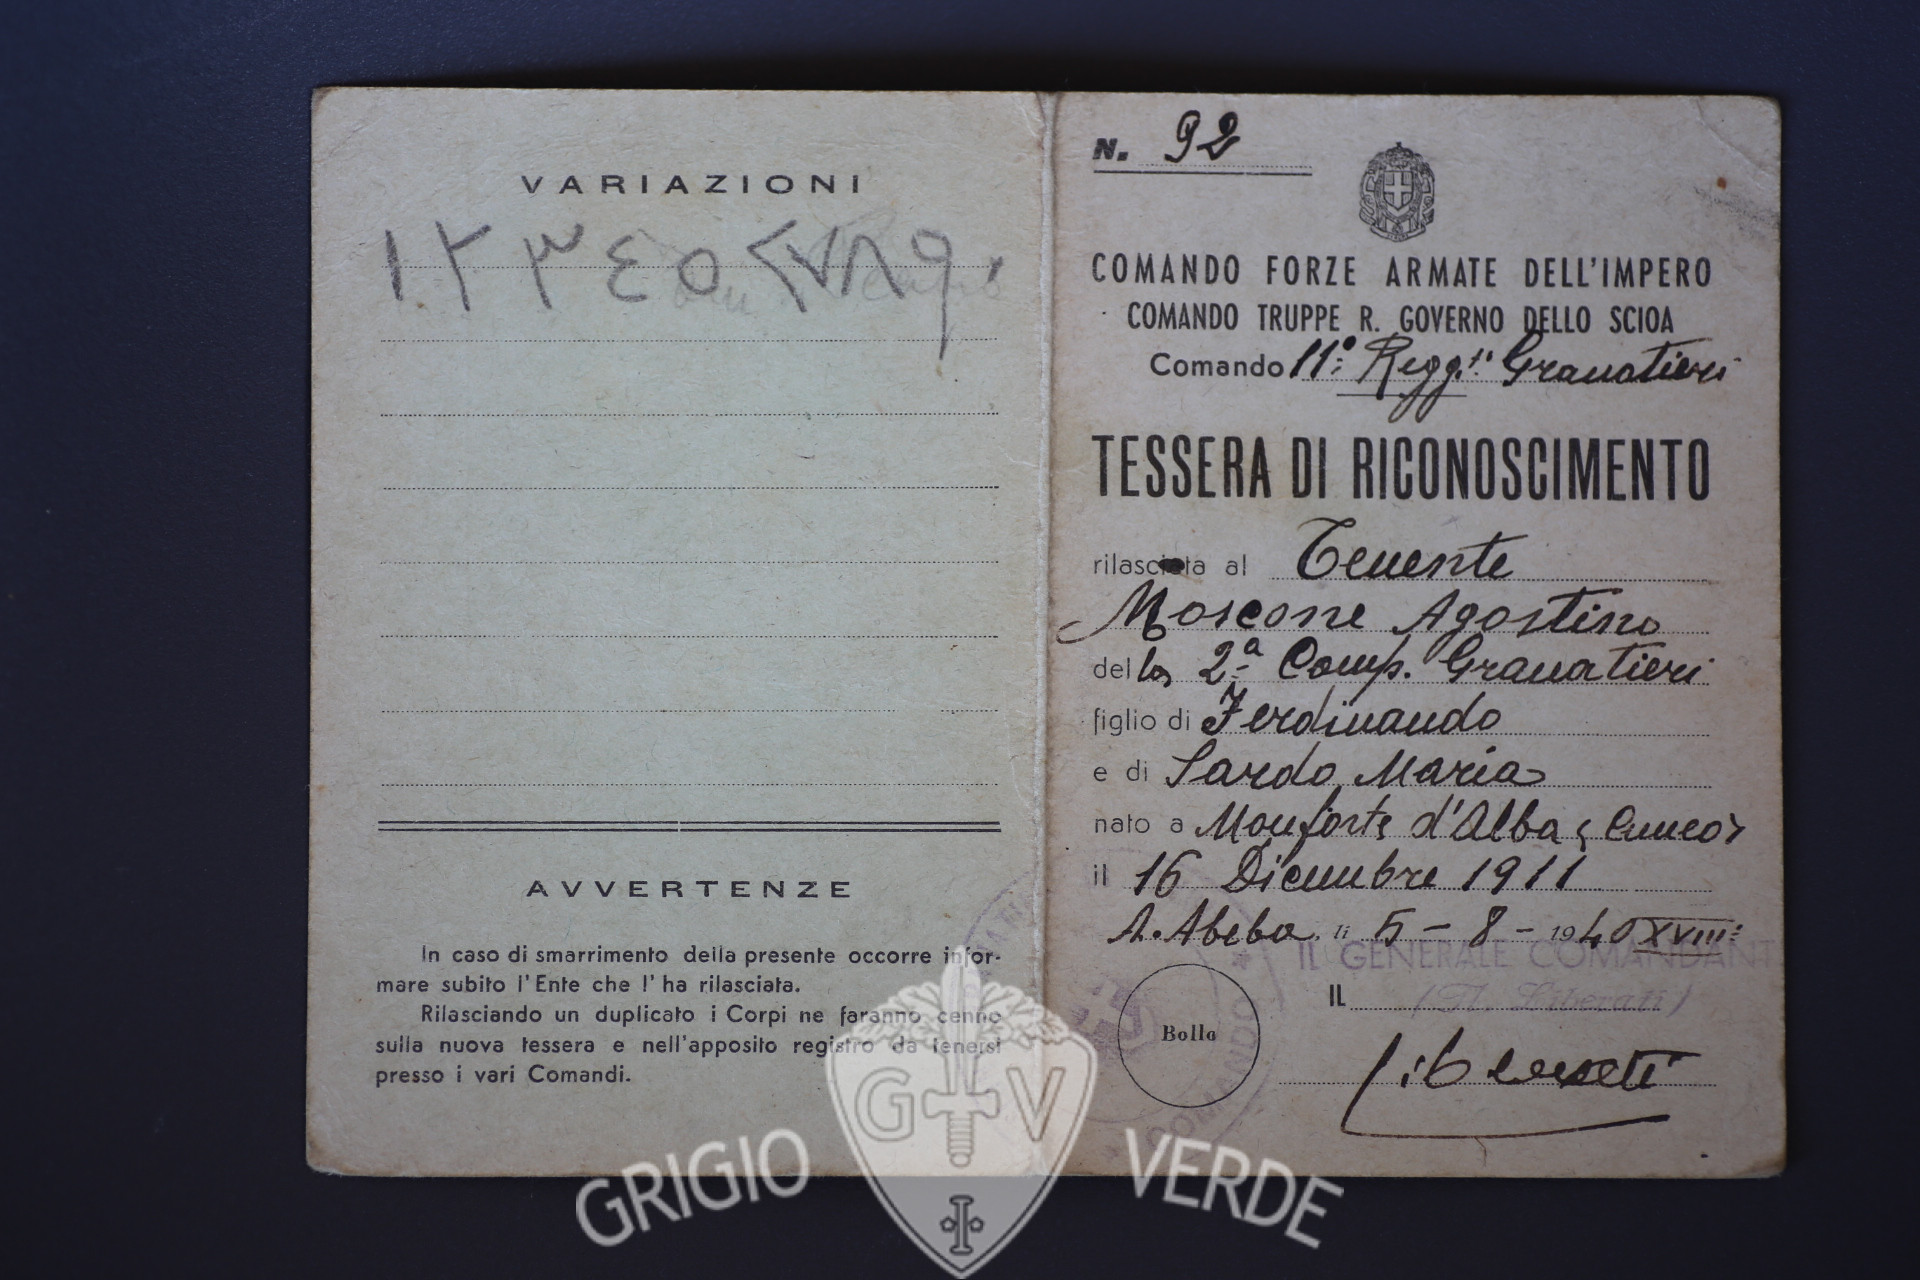 VARIAZIONI
١ ٢ ٣ ٤ ٥ ٦ ٧ ٨ ٩ ٠
AVVERTENZE
In caso di smarrimento della presente occorre infor-
mare subito l'Ente che l'ha rilasciata.
Rilasciando un duplicato i Corpi ne faranno cenno
sulla nuova tessera e nell'apposito registro da tenersi
presso i vari Comandi.
N. 92
COMANDO FORZE ARMATE DELL'IMPERO
COMANDO TRUPPE R. GOVERNO DELLO SCIOA
Comando 11° Regg.ti Granatieri
TESSERA DI RICONOSCIMENTO
rilasciata al Tenente
Moscone Agostino
della 2ª Comp. Granatieri
figlio di Ferdinando
e di Sardo Maria
nato a Monforte d'Alba (Cuneo)
il 16 Dicembre 1911
A. Abeba, li 5 - 8 - 1940 XVIII:
IL GENERALE COMANDANT
IL (Fl. Liberati)
Bollo
Liberati
COMANDO
GV
GRIGIO VERDE